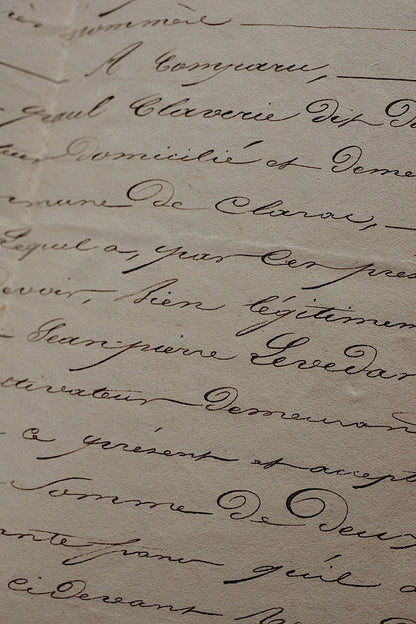 nommére
A Comparu,
paul Claverie dit D
teur Domicilié et Deme
mmune De Clarac,
Lequel a, par Ces prés
Devoir, bien légitimem
Jean-pierre Levedar
ltivateur Demeuran
ce présent et accept
Somme De Deux
ante francs qu'il
cidevant